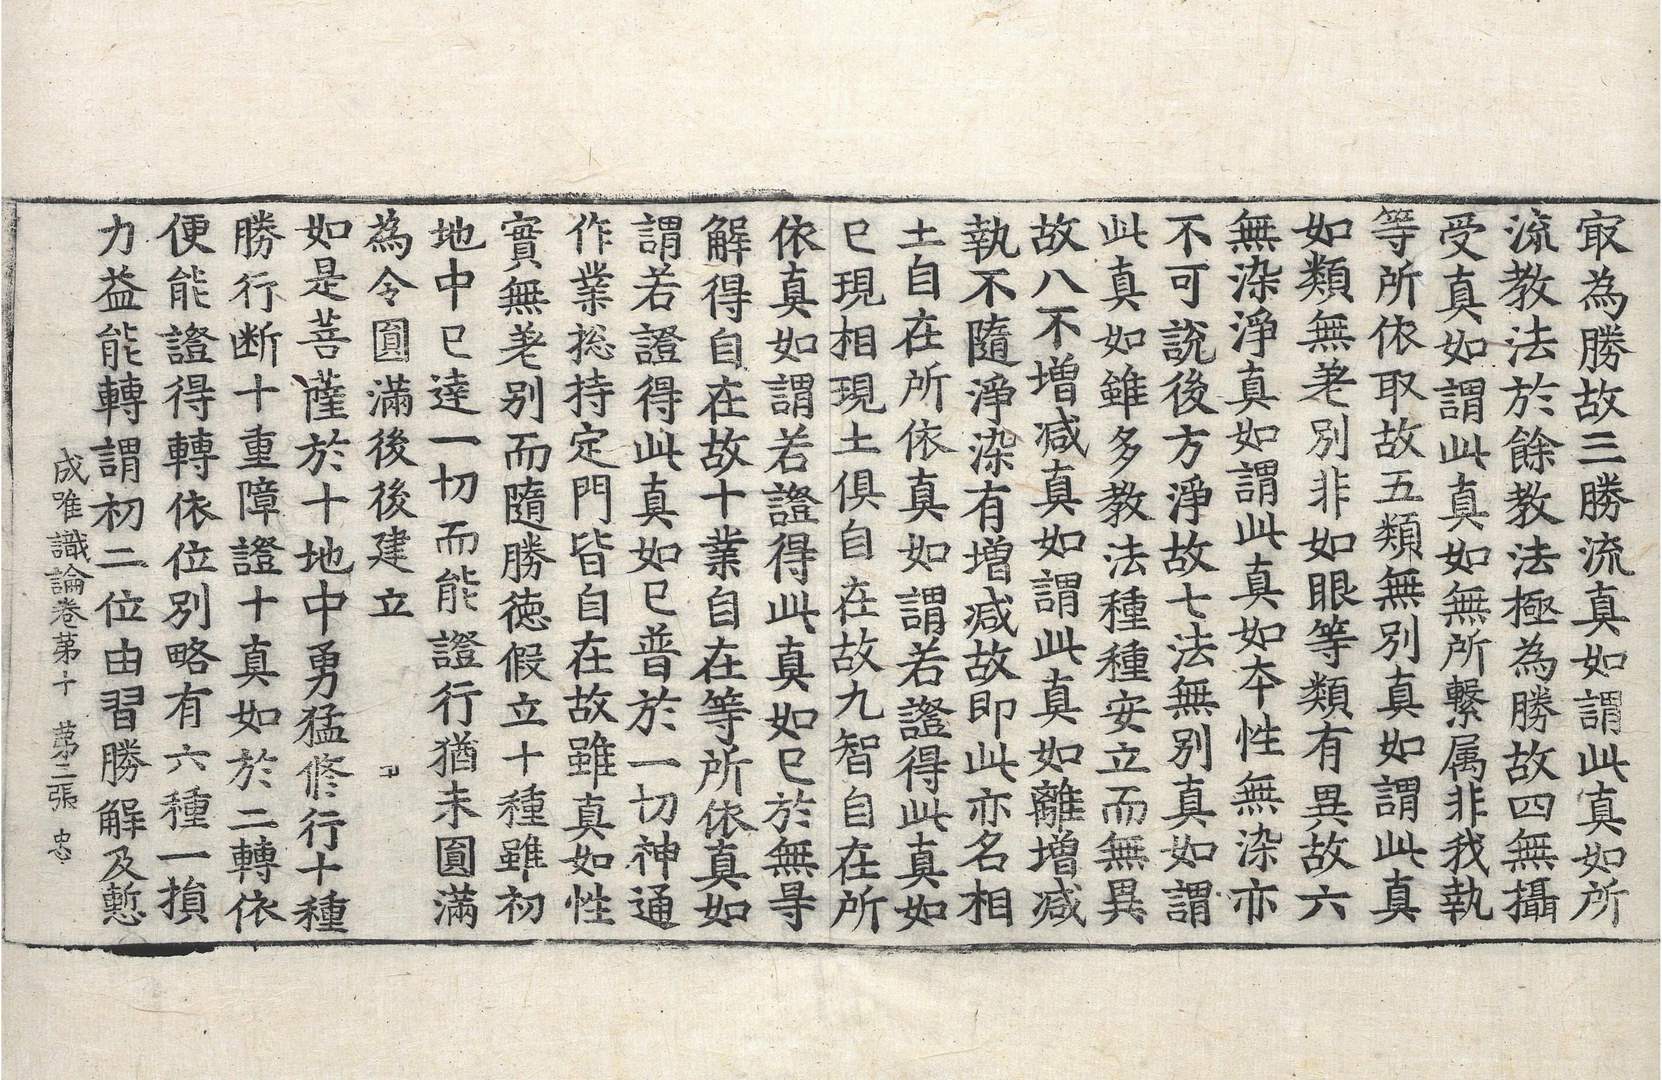 㝡為勝故三勝流真如謂此真如所
流教法於餘教法極為勝故四無攝
受真如謂此真如無所繫属非我執
等所依取故五類無別真如謂此真
如類無差別非如眼等類有異故六
無染淨真如謂此真如本性無染亦
不可說後方淨故七法無別真如謂
此真如雖多教法種種安立而無異
故八不增减真如謂此真如離增减
執不隨淨染有增减故即此亦名相
土自在所依真如謂若證得此真如
已現相現土俱自在故九智自在所
依真如謂若證得此真如已於無㝵
解得自在故十業自在等所依真如
謂若證得此真如已普於一切神通
作業揔持定門皆自在故雖真如性
實無差別而隨勝德假立十種雖初
地中已達一切而能證行猶未圓滿
為令圓滿後後建立
如是菩薩於十地中勇猛修行十種
勝行断十重障證十真如於二轉依
便能證得轉依位別略有六種一損
力益能轉謂初二位由習勝解及慙
成唯識論卷苐十 苐三張 忠